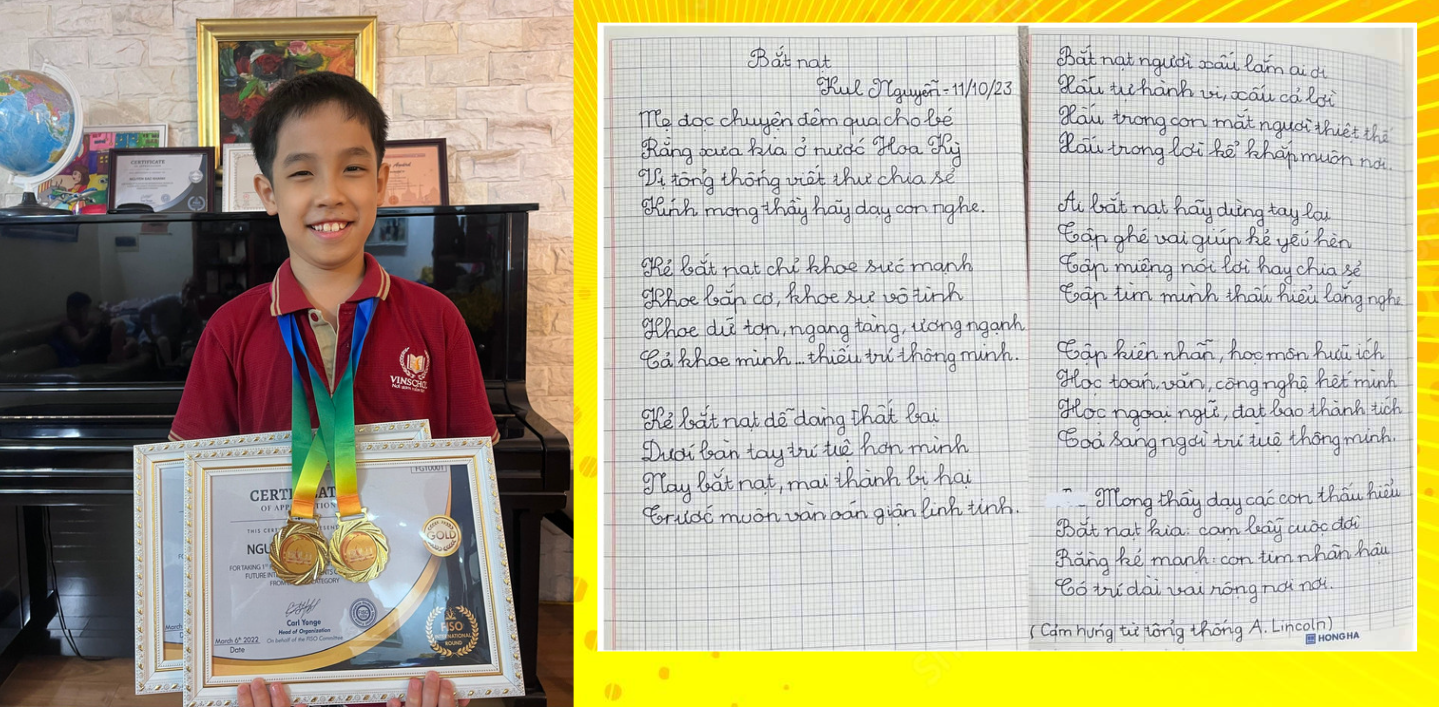 CERTIFICATE
VINSCHOOL
CERTIFICATE
OF APPRECIATION
FOR TAKING 1
FUTURE
Carl Yonge
Head of Organization
On behalf of the FISO Committee
March 6th 2022
Date
GOLD
FISO
INTERNATIONAL
ROUND
Bắt nạt
Kul Nguyễn - 11/10/23
Mẹ đọc chuyện đêm qua cho bé
Rằng xưa kia ở nước Hoa Kỳ
Vị tổng thống viết thư chia sẻ
Kính mong thầy hãy dạy con nghe.
Kẻ bắt nạt chỉ khoe sức mạnh
Khoe bắp cơ, khoe sự vô tình
Khoe dữ tợn, ngang tàng, ương ngạnh
Cả khoe mình... thiếu trí thông minh.
Kẻ bắt nạt dễ dàng thất bại
Dưới bàn tay trí tuệ hơn mình
Nay bắt nạt, mai thành bị hại
Trước muôn vàn oán giận linh tinh.
Bắt nạt người xấu lắm ai ơi
Xấu tự hành vi, xấu cả lời
Xấu trong con mắt người thiệt thế
Xấu trong lời kể khắp muôn nơi.
Ai bắt nạt hãy dừng tay lại
Tập ghé vai giúp kẻ yếu hèn
Tập miệng nói lời hay chia sẻ
Tập tim mình thấu hiểu lắng nghe
Tập kiên nhẫn, học môn hữu ích
Học toán, văn, công nghệ hết mình
Học ngoại ngữ, đạt bao thành tích
Toả sang ngời trí tuệ thông minh.
Mong thầy dạy các con thấu hiểu
Bắt nạt kia: cạm bẫy cuộc đời
Rằng kẻ mạnh: con tim nhân hậu
Có trí dài vai rộng nơi nơi.
(Cảm hứng từ tổng thống A. Lincoln)
HONG HA